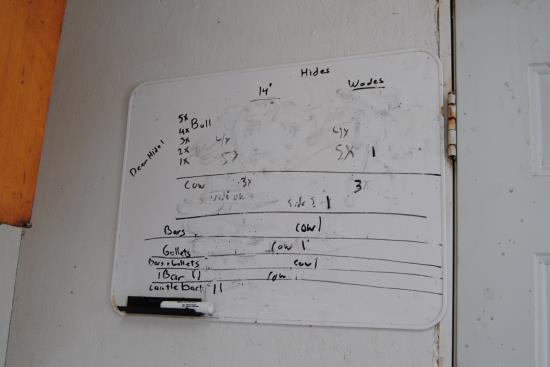 Hides
14" Wades
Deer Hide 1
5x Bull
4x
3x 4x 4x
2x 5x 5X 1
1x
Cow 3x 3
side 2 1
Bars cow 1
Gullets cow 1
Bars + Gullets cow 1
1 Bar 11 cow
Cantle bar 11